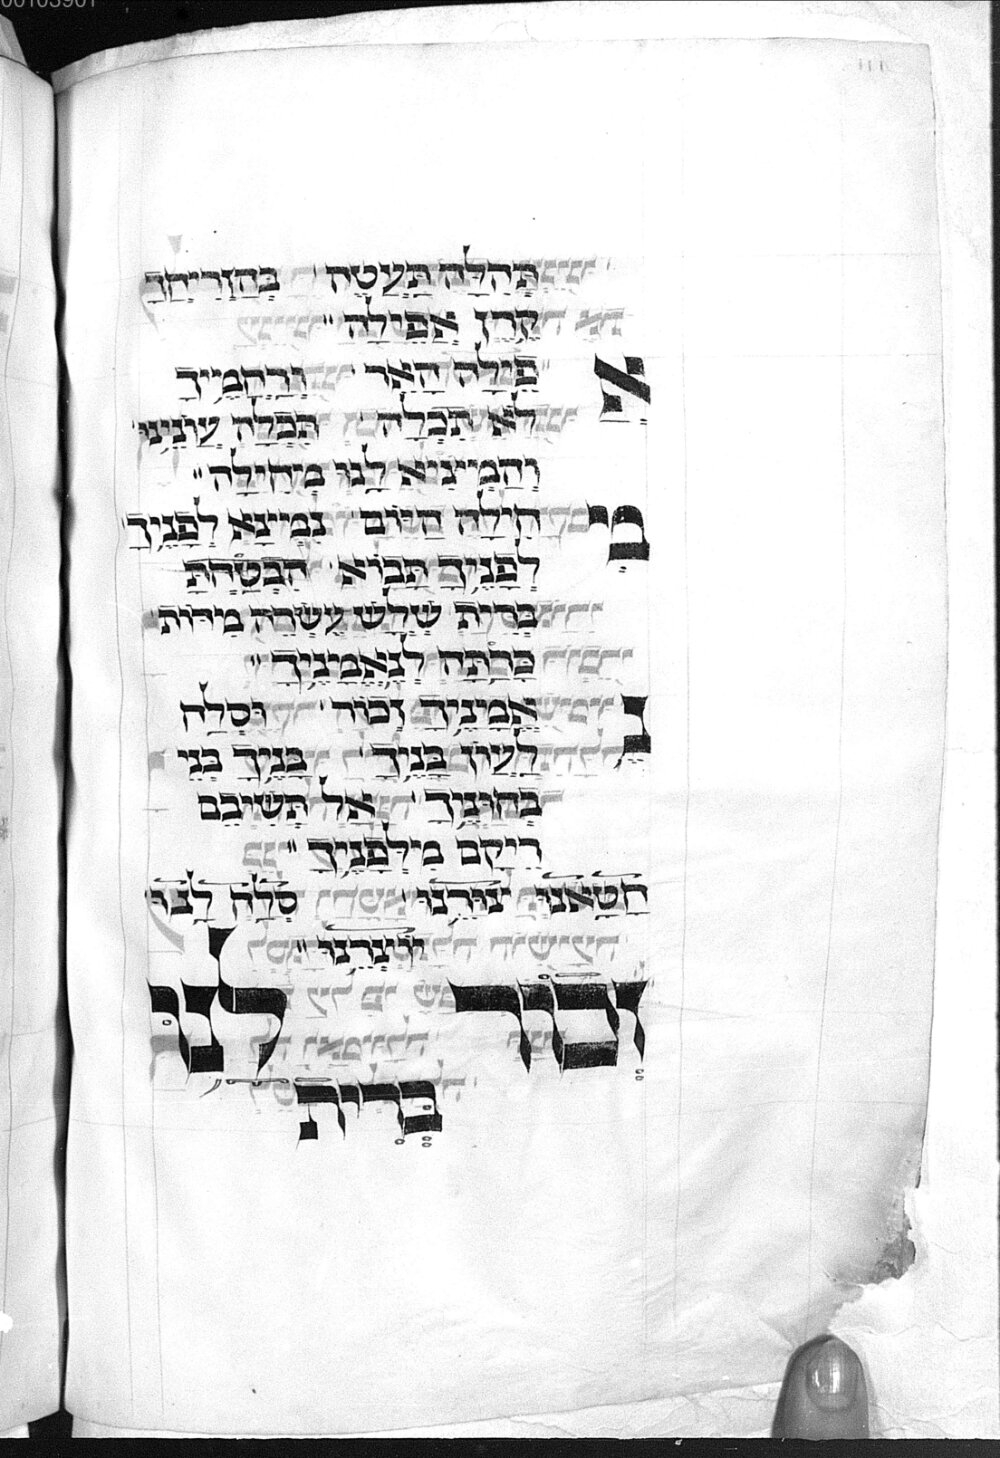 00103901
111
תְּהִלָּה תַּעֲטֶה׳ בְּהַזְרִיחֲךָ
קֶרֶן אֲפִילָה״
אֲפֵילָה הָאֵר׳ וְרַחֲמֶיךָ
לֹא תִכְלָה׳ תְּכַלֶּה עֲוֹנֵינוּ׳
וְהַמְצִיא לָנוּ מְחִילָה״
מְחִילָה הַיּוֹם׳ נִמְצָא לְפָנֶיךָ׳
לְפָנֶיךָ תָּבוֹא׳ הִבְטַחְתָּ
בְּרִית שְׁלֹשׁ עֶשְׂרֵה מִדּוֹת׳
כָּרַתָּה לְנֶאֱמָנֶיךָ״
נֶאֱמָנֶיךָ זְכוֹר׳ וּסְלַח
לַעֲוֹן בָּנֶיךָ׳ בָּנֶיךָ בְּנֵי
בְחוּנֶיךָ׳ אַל תְּשִׁיבֵם
רֵיקָם מִלְּפָנֶיךָ״
חָטָאנוּ צוּרֵנוּ׳ סְלַח לָנוּ
יוֹצְרֵנוּ״
זְכוֹר לָנוּ
בְּרִית